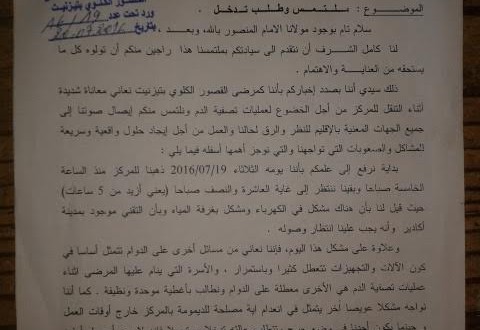 القصور الكلوي بتيزنيت
ورد تحت عدد 16/19
بتاريخ 20.07.2016
الموضوع : ملتمس وطلب تدخل .
سلام تام بوجود مولانا الامام المنصور بالله، وبعد ،
لنا كامل الشرف أن نتقدم الى سيادتكم بملتمسنا هذا راجين منكم أن تولوه كل ما
يستحقه من العناية والاهتمام .
ذلك سيدي أننا بصدد إخباركم بأننا كمرضى القصور الكلوي بتيزنيت نعاني معاناة شديدة
أثناء التنقل للمركز من أجل الخضوع لعمليات تصفية الدم ونلتمس منكم إيصال صوتنا إلى
جميع الجهات المعنية بالإقليم للنظر والرق لحالنا والعمل من أجل إيجاد حلول واقعية وسريعة
للمشاكل والصعوبات التي تواجهنا والتي نوجز أهمها أسفله فيما يلي :
بداية نرفع إلى علمكم بأننا يومه الثلاثاء 2016/07/19 ذهبنا للمركز منذ الساعة
الخامسة صباحا وبقينا ننتظر إلى غاية العاشرة والنصف صباحا (يعني أزيد من 5 ساعات)
حيث قيل لنا بأن هناك مشكل في الكهرباء ومشكل بغرفة المياه وبأن التقني موجود بمدينة
أكادير وأنه يجب علينا انتظار وصوله .
وعلاوة على مشكل هذا اليوم، فإننا نعاني من مسائل أخرى على الدوام تتمثل أساسا في
كون الآلات والتجهيزات تتعطل كثيرا وباستمرار ، والأسرة التي ينام عليها المرضى اثناء
عمليات تصفية الدم هي الأخرى معطلة على الدوام ونطالب بأغطية موحدة ونظيفة . كما أننا
نواجه مشكلا عويصا آخر يتمثل في انعدام اية مصلحة للديمومة بالمركز خارج أوقات العمل